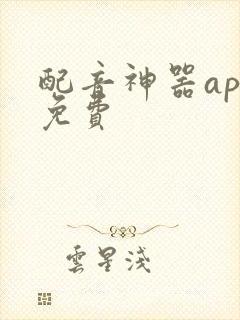 配音神器ap
免費
雲星淺